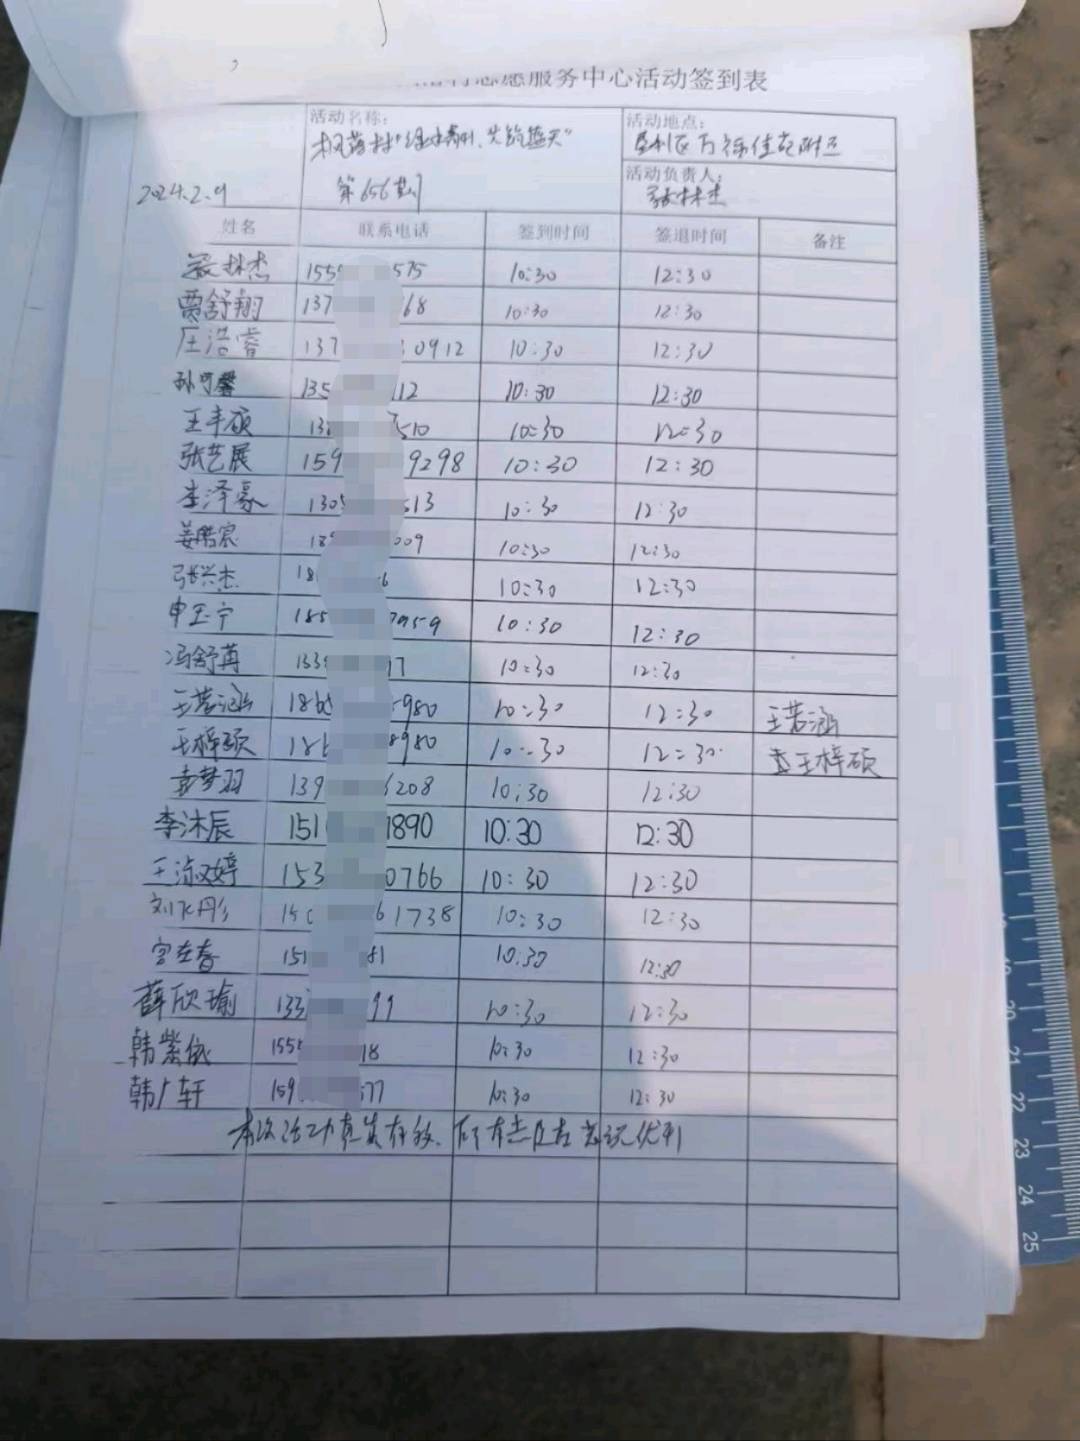 志愿服务中心活动签到表
活动名称:
活动地点:
第656期
活动负责人:
张林杰
2024.2.9
姓名 联系电话 签到时间 签退时间 备注
张林杰 155 575 10:30 12:30
贾舒翔 137 68 10:30 12:30
匡浩睿 137 0912 10:30 12:30
孙可馨 135 112 10:30 12:30
王丰硕 510 10:30 12:30
张艺展 159 9298 10:30 12:30
李泽豪 130 613 10:30 12:30
姜皓宸 18 009 10:30 12:30
张兴杰 18 6 10:30 12:30
申玉宁 185 959 10:30 12:30
冯舒苒 133 7 10:30 12:30
王若涵 186 980 10:30 12:30 王若涵
王梓硕 186 8980 10:30 12:30 王梓硕
袁梦羽 139 208 10:30 12:30
李沐辰 151 1890 10:30 12:30
王淑婷 153 0766 10:30 12:30
刘 彤 150 1738 10:30 12:30
宫在春 151 81 10:30 12:30
薛欣瑜 133 99 10:30 12:30
韩紫依 155 18 10:30 12:30
韩广轩 159 577 10:30 12:30
本次活动真实有效,所有志愿者表现优秀
21
22
23
24
25